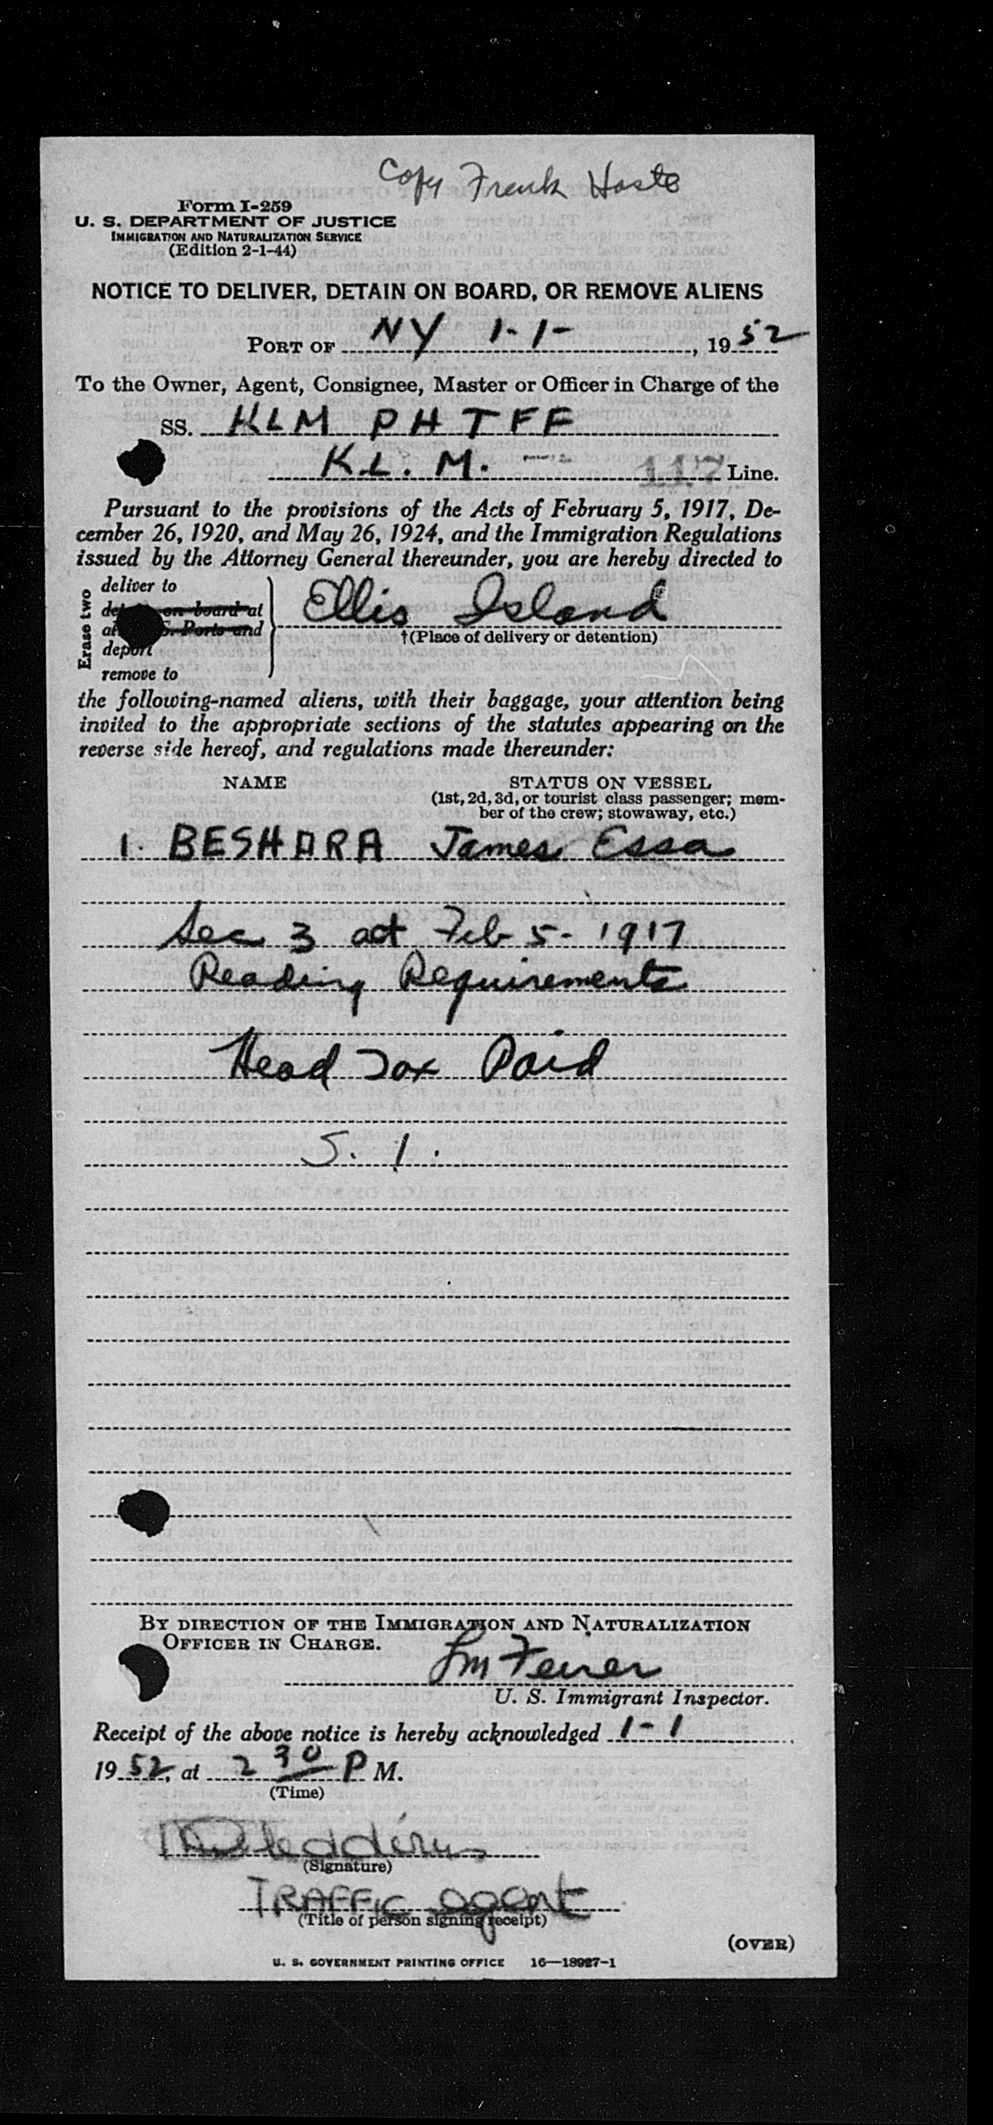 Copy Frank Hoste
Form I-259
U. S. DEPARTMENT OF JUSTICE
IMMIGRATION AND NATURALIZATION SERVICE
(Edition 2-1-44)
NOTICE TO DELIVER, DETAIN ON BOARD, OR REMOVE ALIENS
PORT OF NY 1-1-, 1952
To the Owner, Agent, Consignee, Master or Officer in Charge of the
SS. KLM PHTFF
K.L.M. — 117 Line.
Pursuant to the provisions of the Acts of February 5, 1917, De-
cember 26, 1920, and May 26, 1924, and the Immigration Regulations
issued by the Attorney General thereunder, you are hereby directed to
Erase two
deliver to
on board at
S. Ports and
deport
remove to
Ellis Island
†(Place of delivery or detention)
the following-named aliens, with their baggage, your attention being
invited to the appropriate sections of the statutes appearing on the
reverse side hereof, and regulations made thereunder:
NAME STATUS ON VESSEL
(1st, 2d, 3d, or tourist class passenger; mem-
ber of the crew; stowaway, etc.)
1. BESHARA James Essa
Sec 3 act Feb 5-1917
Reading Requirements
Head Tax Paid
S. I.
BY DIRECTION OF THE IMMIGRATION AND NATURALIZATION
OFFICER IN CHARGE.
U. S. Immigrant Inspector.
Receipt of the above notice is hereby acknowledged 1-1
1952, at 2 30 P M.
(Time)
(Signature)
TRAFFIC agent
(Title of person signing receipt)
(OVER)
U. S. GOVERNMENT PRINTING OFFICE 16—18927-1